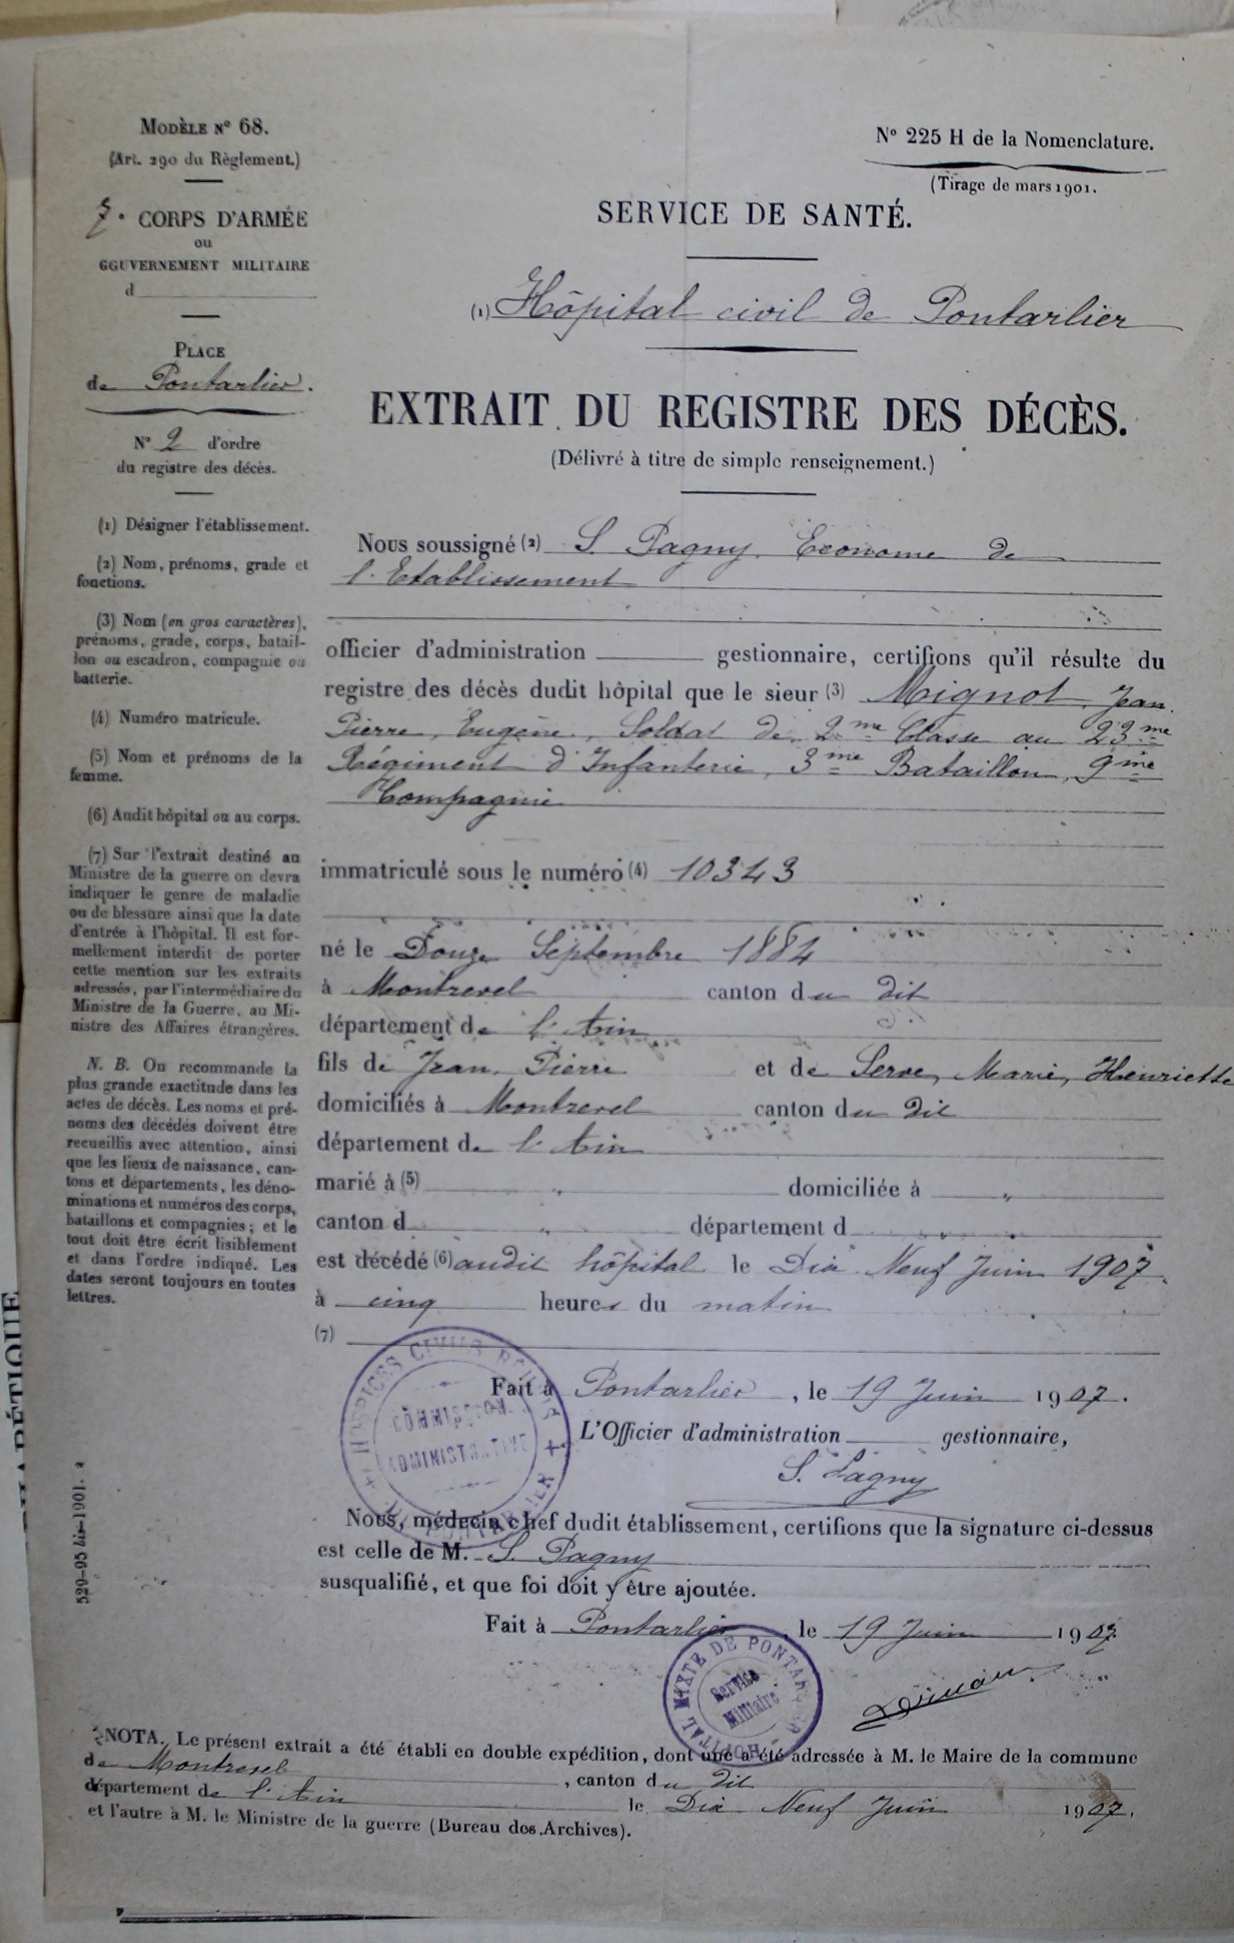 MODÈLE N° 68.
(Art. 290 du Règlement.)
7. CORPS D'ARMÉE
OU
GOUVERNEMENT MILITAIRE
d
PLACE
de Pontarlier.
N° 2 d'ordre
du registre des décès.
(1) Désigner l'établissement.
(2) Nom, prénoms, grade et
fonctions.
(3) Nom (en gros caractères),
prénoms, grade, corps, batail-
lon ou escadron, compagnie ou
batterie.
(4) Numéro matricule.
(5) Nom et prénoms de la
femme.
(6) Audit hôpital ou au corps.
(7) Sur l'extrait destiné au
Ministre de la guerre on devra
indiquer le genre de maladie
ou de blessure ainsi que la date
d'entrée à l'hôpital. Il est for-
mellement interdit de porter
cette mention sur les extraits
adressés, par l'intermédiaire du
Ministre de la Guerre, au Mi-
nistre des Affaires étrangères.
N. B. On recommande la
plus grande exactitude dans les
actes de décès. Les noms et pré-
noms des décédés doivent être
recueillis avec attention, ainsi
que les lieux de naissance, can-
tons et départements, les déno-
minations et numéros des corps,
bataillons et compagnies; et le
tout doit être écrit lisiblement
et dans l'ordre indiqué. Les
dates seront toujours en toutes
lettres.
N° 225 H de la Nomenclature.
(Tirage de mars 1901.
SERVICE DE SANTÉ.
(1) Hôpital civil de Pontarlier
EXTRAIT DU REGISTRE DES DÉCÈS.
(Délivré à titre de simple renseignement.)
Nous soussigné (2) S. Pagny Econome de
l'Etablissement
officier d'administration gestionnaire, certifions qu'il résulte du
registre des décès dudit hôpital que le sieur (3) Mignot, Jean
Pierre, Eugène, Soldat de 2me Classe au 23me
Régiment d'Infanterie, 3me Bataillon, 9me
Compagnie
immatriculé sous le numéro (4) 10343
né le Douze Septembre 1884
à Montrevel canton du dit
département de l'Ain
fils de Jean Pierre et de Serve, Marie, Henriette
domiciliés à Montrevel canton du dit
département de l'Ain
marié à (5) " domiciliée à "
canton d " département d "
est décédé (6) audit hôpital le Dix Neuf Juin 1907.
à cinq heures du matin
(7)
HOSPICES CIVILS RÉUNIS
COMMISSION
ADMINISTRATIVE
Fait à Pontarlier, le 19 Juin 1907.
L'Officier d'administration gestionnaire,
S. Pagny
Nous, médecin chef dudit établissement, certifions que la signature ci-dessus
est celle de M. S. Pagny
susqualifié, et que foi doit y être ajoutée.
Fait à Pontarlier, le 19 Juin 1907.
HOPITAL MIXTE DE PONTARLIER
Service
Militaire
NOTA. Le présent extrait a été établi en double expédition, dont une a été adressée à M. le Maire de la commune
de Montrevel, canton du dit
département de l'Ain le Dix Neuf Juin 1907.
et l'autre à M. le Ministre de la guerre (Bureau des Archives).